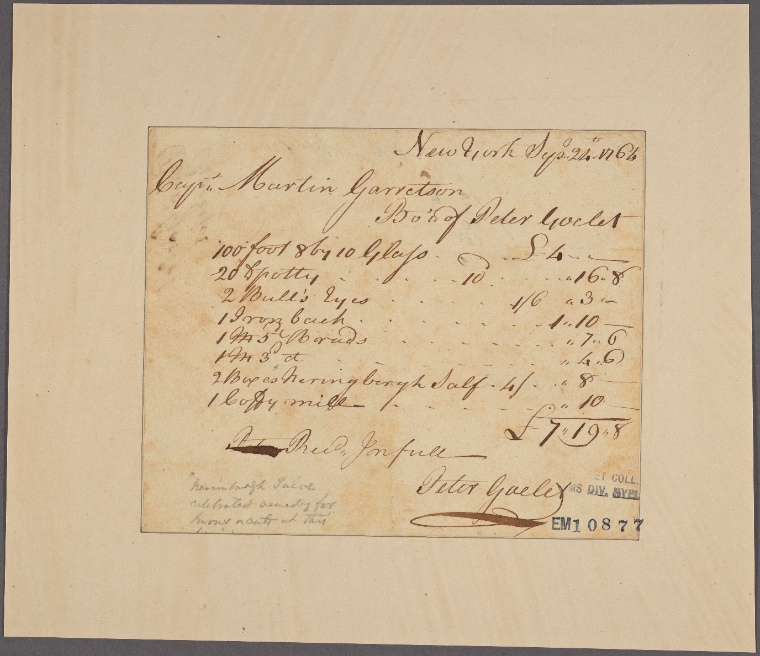 New York Sepr 24th 1764
Captn Martin Garretson
Bot of Peter Goelet
100 foot 8 by 10 Glass . . £ 4 -- --
20 Spotty . . . 10 . . " 16 " 8
2 Bull's Eyes . . 1/6 " 3 " --
1 Iron back . . . 1 " 10 --
1 M 5d Brads . . . " 7 " 6
1 M 3d d . . . " 4 " 6
2 Boxes heringburgh Salf . 4/ . " 8 --
1 Coffy mill . . . " 10 --
£ 7 " 19 " 8
Recd In full
Peter Goelet
celebrated remedy for
at this
ET COLL.
MS DIV. NYPL
EM10877